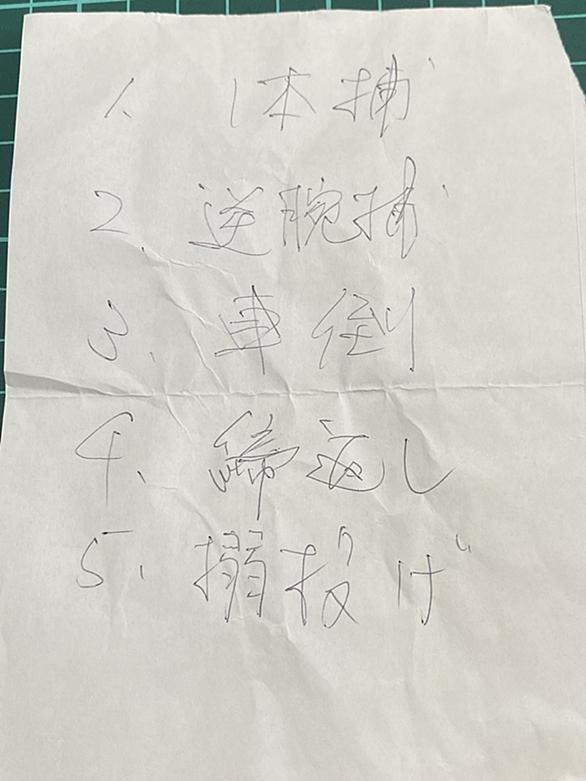 1. 1本捕
2. 逆腕捕
3. 車倒
4. 締返し
5. 搦投げ